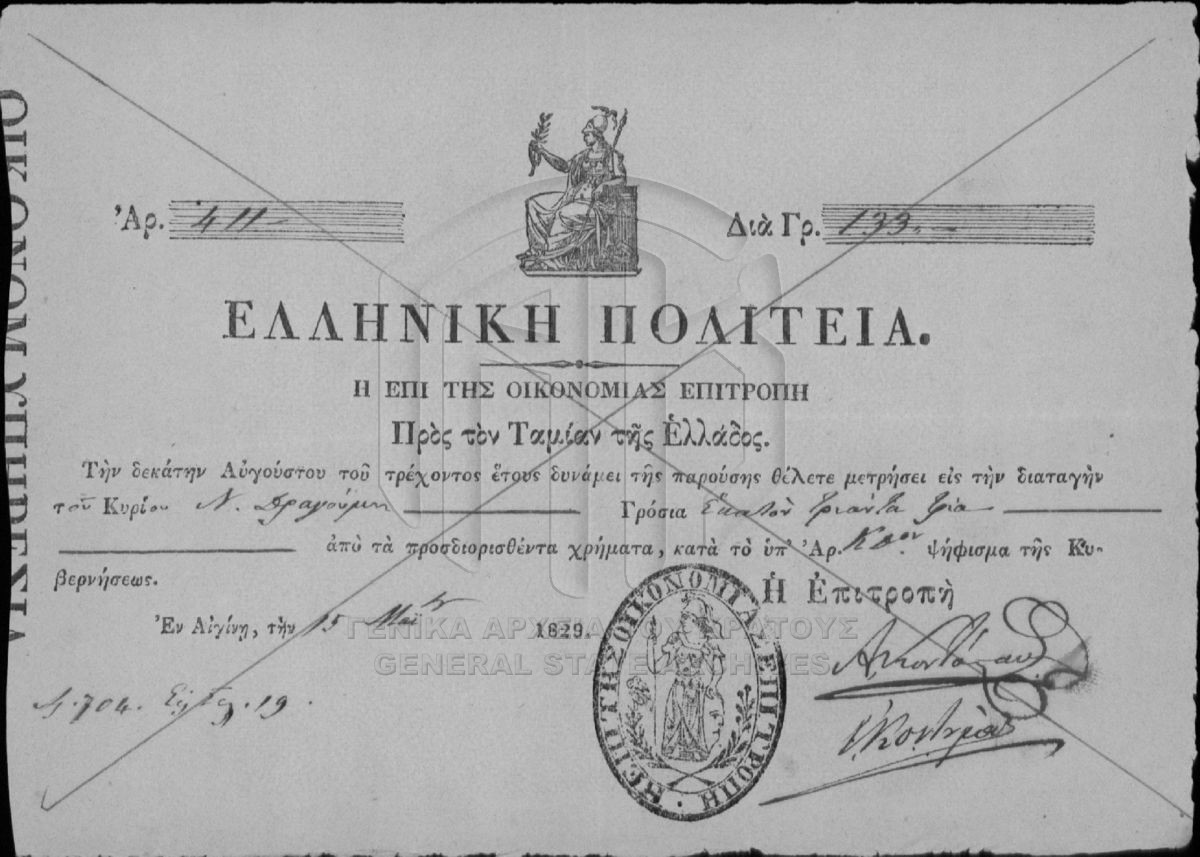 ΟΙΚΟΝΟΜ ΥΠΗΡΕΣΙΑ
Ἀρ. 411
Διὰ Γρ. 133.
ΕΛΛΗΝΙΚΗ ΠΟΛΙΤΕΙΑ.
Η ΕΠΙ ΤΗΣ ΟΙΚΟΝΟΜΙΑΣ ΕΠΙΤΡΟΠΗ
Πρὸς τὸν Ταμίαν τῆς Ἑλλάδος.
Τὴν δεκάτην Αὐγούστου τοῦ τρέχοντος ἔτους δυνάμει τῆς παρούσης θέλετε μετρήσει εἰς τὴν διαταγὴν
τοῦ Κυρίου Ν. Δραγούμη Γρόσια Ἑκατὸν τριάντα τρία
ἀπὸ τὰ προσδιορισθέντα χρήματα, κατὰ τὸ ὑπ' Ἀρ. ψήφισμα τῆς Κυ-
βερνήσεως.
Ἡ Ἐπιτροπὴ
Ἐν Αἰγίνῃ, τὴν 15 Μαΐου 1829.
ΓΕΝΙΚΑ ΑΡΧΕΙΑ ΤΟΥ ΚΡΑΤΟΥΣ
GENERAL STATE ARCHIVES
Η ΕΠΙ ΤΗΣ ΟΙΚΟΝΟΜΙΑΣ ΕΠΙΤΡΟΠΗ
704. 19.